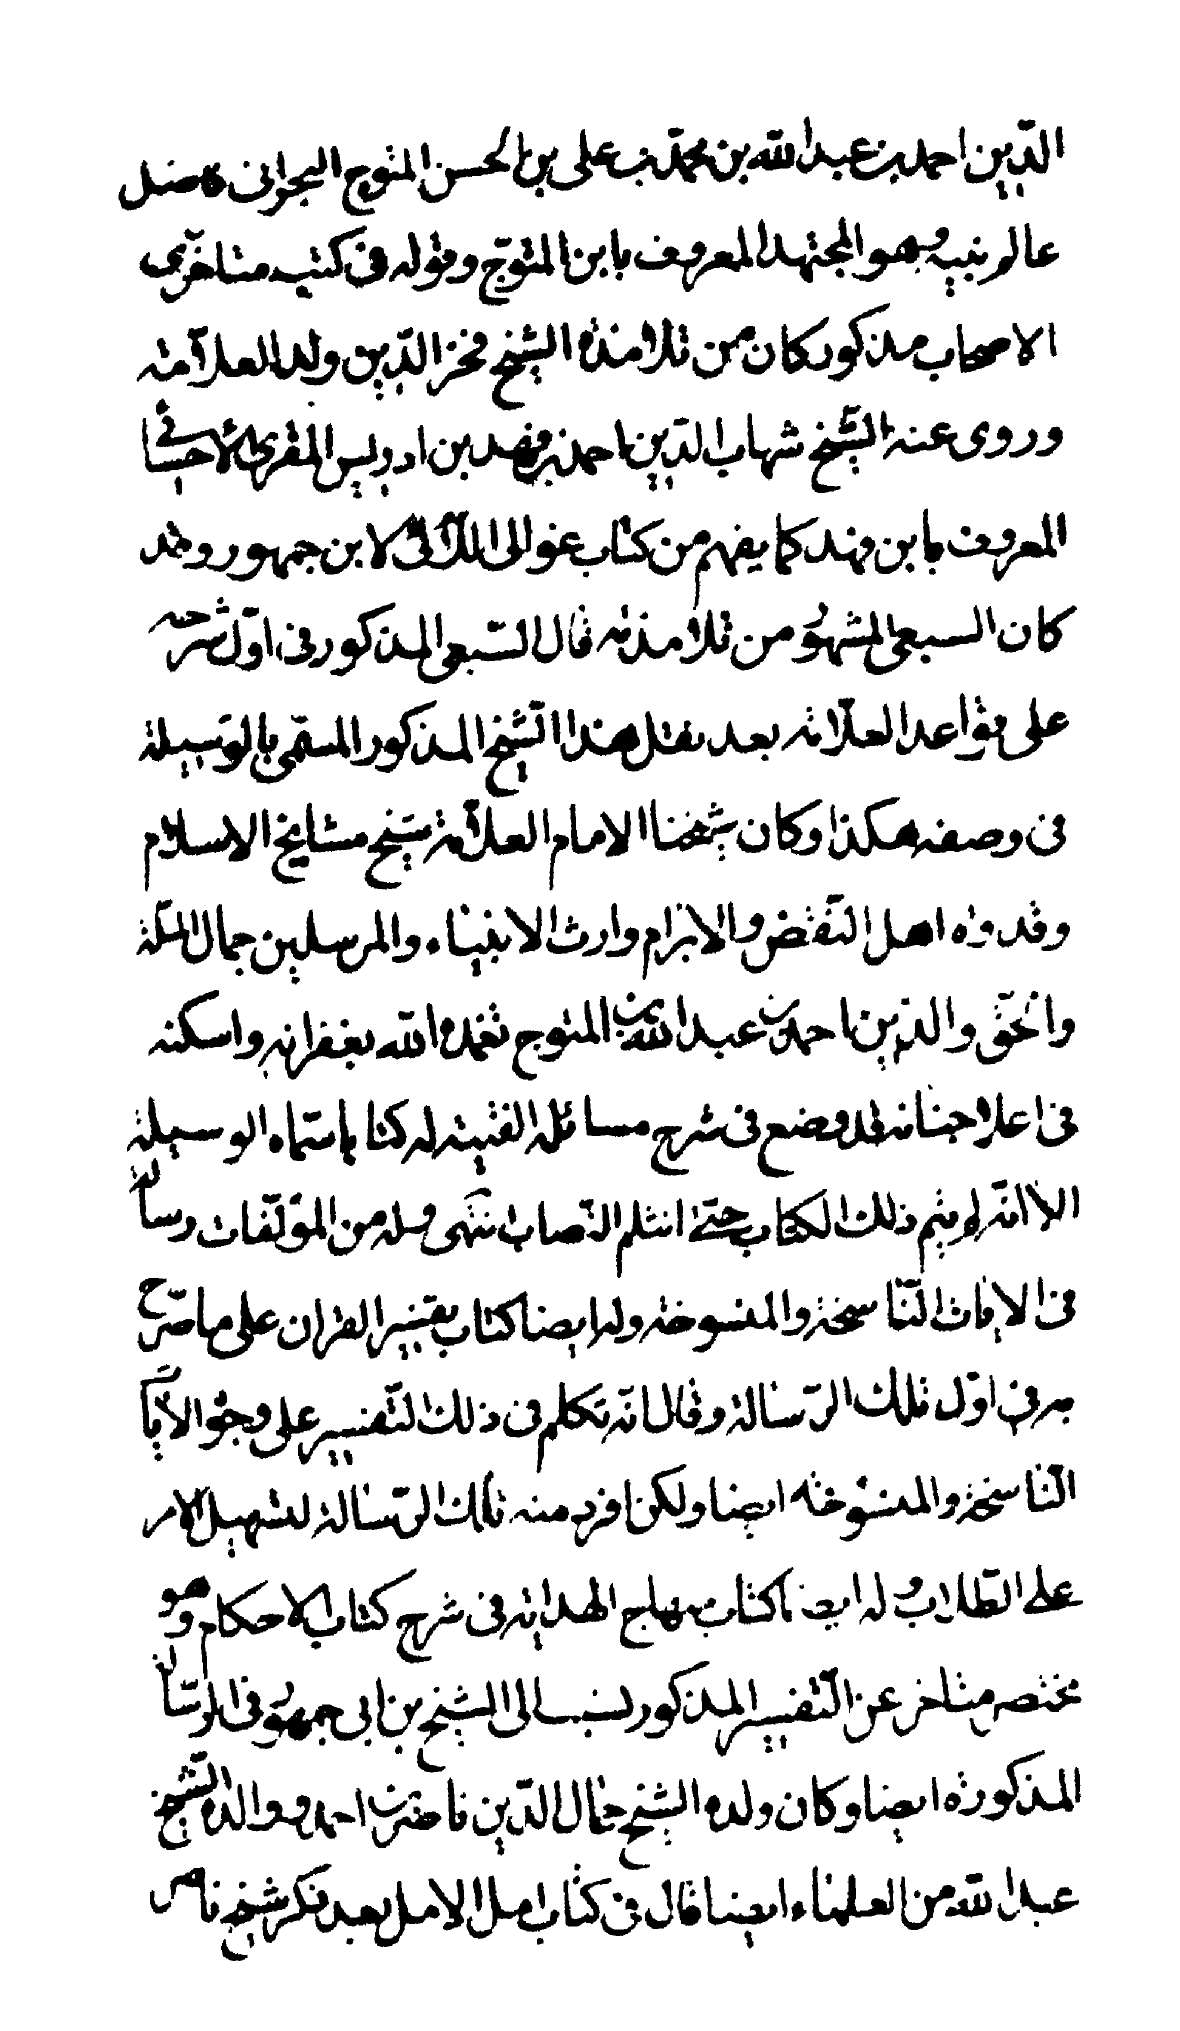 الدّين احمد بن عبد الله بن محمّد بن على بن الحسن المتوج البحرانى فاضل
عالم نبيه وهو المجتهد المعروف بابن المتوّج وقوله فى كتب متاخرى
الاصحاب مذكور كان من تلامذة الشيخ فخر الدّين ولد العلاّمة
وروى عنه الشّيخ شهاب الدّين احمد بن فهد بن ادريس المقرى الاحسائى
المعروف بابن فهد كما يفهم من كتاب غوالى اللآلى لابن جمهور وقد
كان السبعى المشهور من تلامذته قال السّبعى المذكور فى اوّل شرحه
على قواعد العلّامة بعد نقل هذا الشّيخ المذكور المسمّى بالوسيلة
فى وصفه هكذا وكان شيخنا الامام العلاّمة شيخ مشايخ الاسلام
وقدوة اهل النّقض والابرام وارث الانبياء والمرسلين جمال الملّة
والحقّ والدّين احمد بن عبد الله بن المتوج تغمده الله بغفرانه واسكنه
فى اعلا جنانه قد وضع فى شرح مسائله الفقيه له كتابا سمّاه الوسيلة
الا انّه لم يتم ذلك الكتاب حتّى انثلم النّصاب انتهى وله من المؤلّفات رسالة
فى الايات النّاسخة والمنسوخة وله ايضا كتاب تفسير القران على ما صرّح
به فى اوّل تلك الرّسالة وقال انّه تكلم فى ذلك التّفسير على وجوه الايات
النّاسخة والمنسوخة ايضا ولكن افرد منه تلك الرّسالة لتسهيل الامر
على الطّلاب وله ايضا كتاب منهاج الهداية فى شرح كتاب الاحكام وهو
مختصر متاخر عن التّفسير المذكور نسبه الى الشيخ بن ابى جمهور فى الرسالة
المذكورة ايضا وكان ولده الشيخ جمال الدّين ناصر بن احمد ووالده الشّيخ
عبد الله من العلماء ايضا قال فى كتاب امل الامل بعد ذكر شيخ ناصر